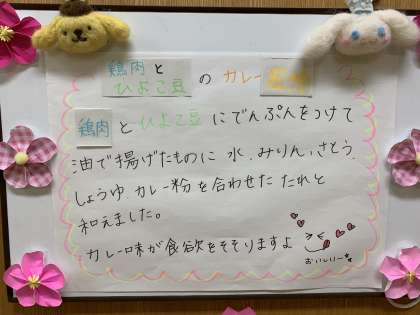 鶏肉と
ひよこ豆のカレー
鶏肉とひよこ豆にでんぷんをつけて
油で揚げたものに水、みりん、さとう、
しょうゆ、カレー粉を合わせたたれと
和えました。
カレー味が食欲をそそりますよ
おいしいー